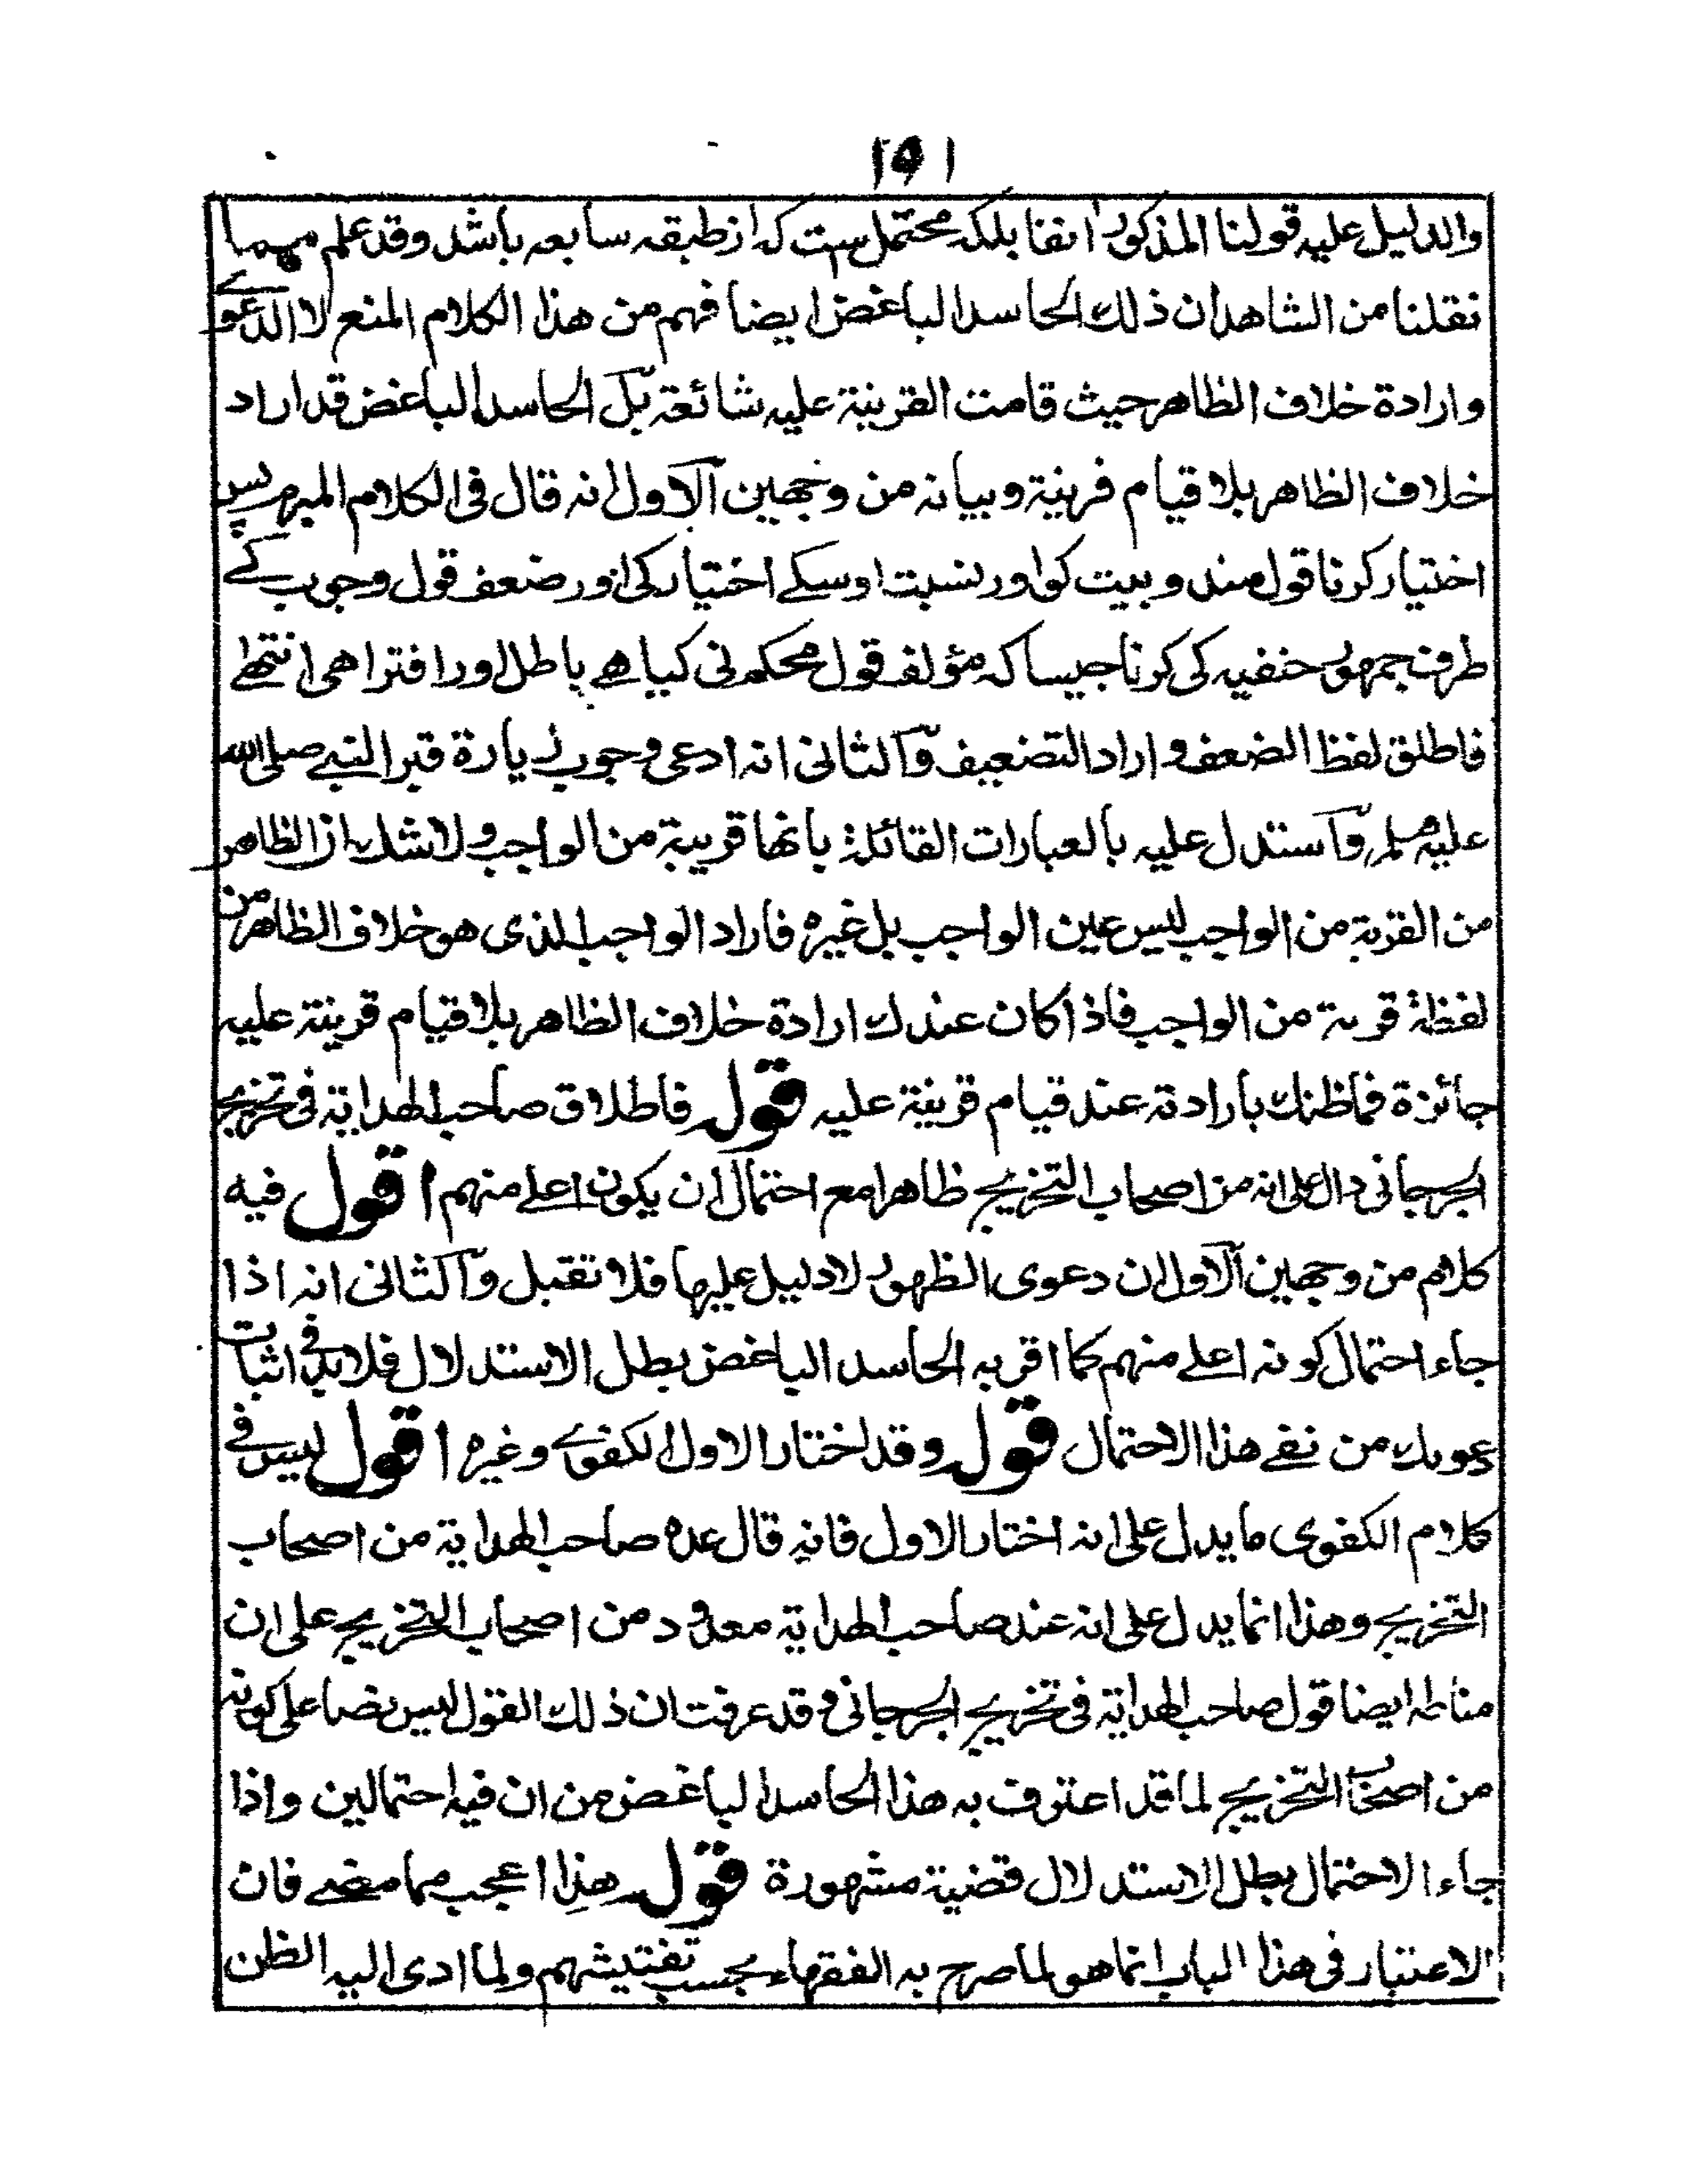 والدليل عليه قولنا المذكور انفا بلكه محتمل ست كه از طبقه سابعه باشد وقد علم مهما
نقلنا من الشاهد ان ذلك الحاسد الباغض ايضا فهم من هذا الكلام المنع لا الدعوے
وارادة خلاف الظاهر حيث قامت القرينة عليه شائعة بل الحاسد الباغض قد اراد
خلاف الظاهر بلا قيام قرينة وبيانه من وجهين الاول انه قال فى الكلام المبرم پس
اختيار كرنا قول مندوبيت كو اور نسبت اوسكے اختيار كى اور ضعف قول وجوب كے
طرف جمهور حنفيه كى كرنا جيسا كه مؤلف قول محكم نى كيا هے باطل اور افترا هى انتهے
فاطلق لفظ الضعف واراد التضعيف والثانى انه ادعى وجوب زيارة قبر النبے صلى الله
عليه وسلم واستدل عليه بالعبارات القائلة بانها قريبة من الواجب ولا شك ان الظاهر
من القربة من الواجب ليس عين الواجب بل غيره فاراد الواجب الذى هو خلاف الظاهر من
لفظة قربة من الواجب فاذا كان عندك ارادة خلاف الظاهر بلا قيام قرينة عليه
جائزة فما ظنك بارادته عند قيام قرينة عليه قوله فاطلاق صاحب الهداية فى تخريج
الجرجانى دال على انه من اصحاب التخريج ظاهرا مع احتمال ان يكون اعلے منهم اقول فيه
كلام من وجهين الاول ان دعوى الظهور لا دليل عليها فلا تقبل والثانى انه اذا
جاء احتمال كونه اعلے منهم كما اقر به الحاسد الباغض بطل الاستدلال فلا بد فى اثبات
دعوىك من نفے هذا الاحتمال قوله وقد اختار الاول الكفوے وغيره اقول ليس فے
كلام الكفوى ما يدل على انه اختار الاول فانه قال عده صاحب الهداية من اصحاب
التخريج وهذا انما يدل على انه عند صاحب الهداية معدود من اصحاب التخريج على ان
مناطه ايضا قول صاحب الهداية فى تخريج الجرجانى وقد عرفت ان ذلك القول ليس نصا على كونه
من اصحاب التخريج لما قد اعترف به هذا الحاسد الباغض من ان فيه احتمالين واذا
جاء الاحتمال بطل الاستدلال قضية مشهورة قوله هذا اعجب مما مضے فان
الاعتبار فى هذا الباب انما هو لما صرح به الفقهاء بحسب تفتيشهم ولما ادى اليه الظن